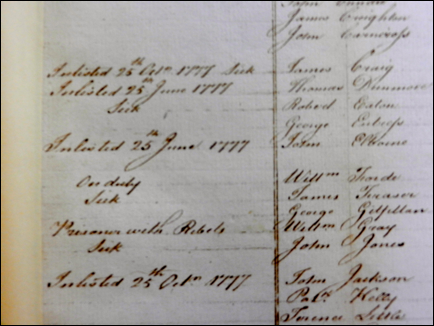 John
James Creighton
John Carncross
Inlisted 25th Octr 1777 Sick James Craig
Inlisted 25th June 1777 Thomas Dunmore
Sick Robert Eaton
George
Inlisted 25th June 1777 John
On duty Willm Forde
Sick James Frasor
George Gilfillan
Prisoner with Rebels Willm Gray
Sick John Jones
Inlisted 25th Octr 1777 John Jackson
Patk Kelly
Terence Little